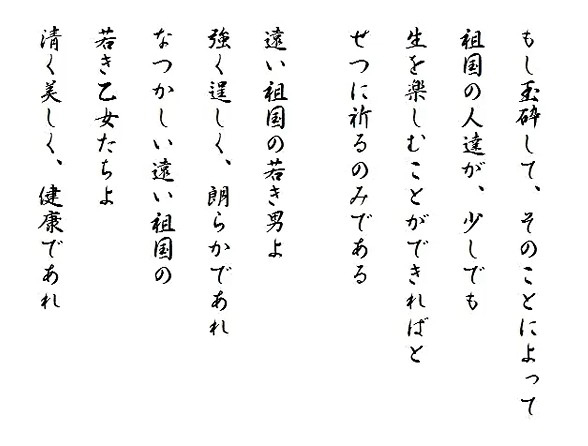 もし玉砕して、そのことによって
祖国の人達が、少しでも
生を楽しむことができればと
せつに祈るのみである
遠い祖国の若き男よ
強く逞しく、朗らかであれ
なつかしい遠い祖国の
若き乙女たちよ
清く美しく、健康であれ